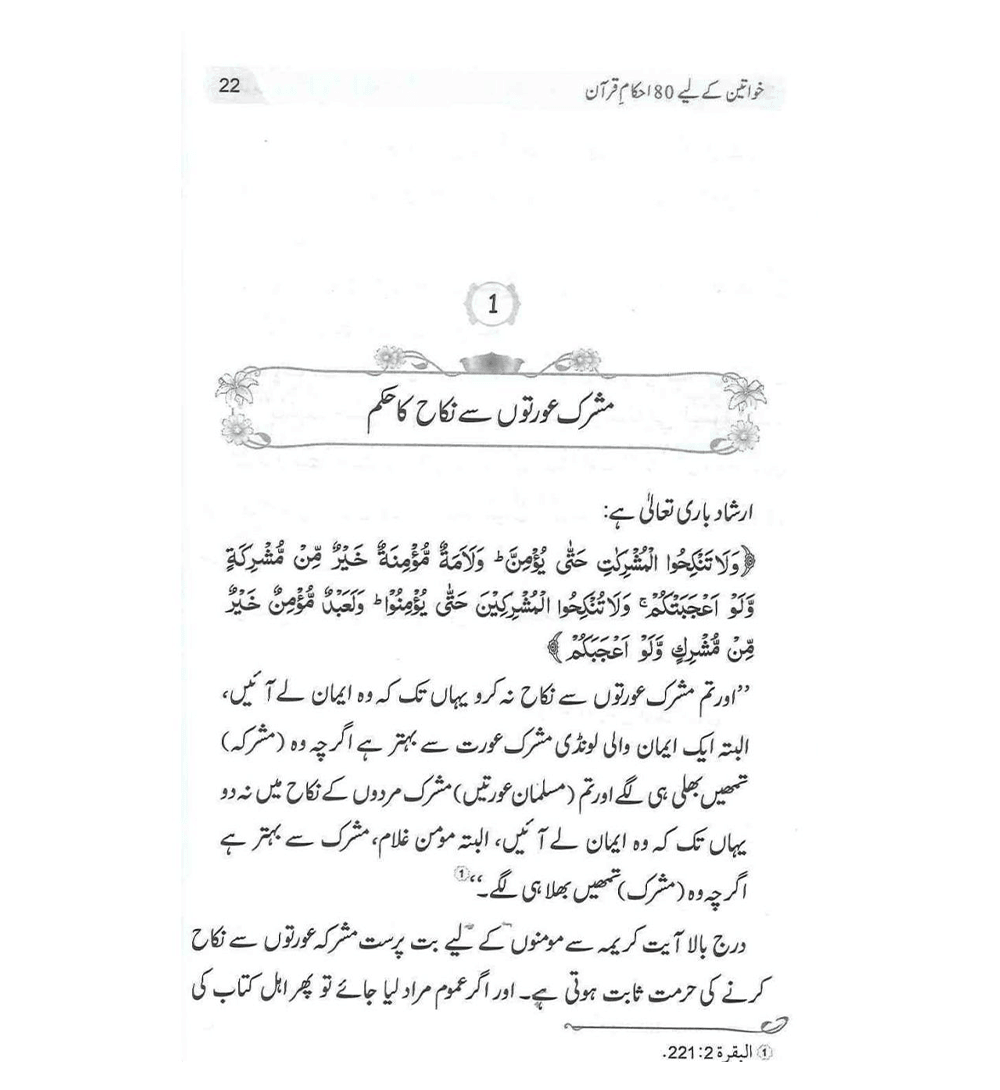 خواتین کے لیے 80 احکامِ قرآن
22
1
مشرک عورتوں سے نکاح کا حکم
ارشاد باری تعالیٰ ہے:
﴿وَلَا تَنْكِحُوا الْمُشْرِكٰتِ حَتّٰى يُؤْمِنَّ ؕ وَلَاَمَةٌ مُّؤْمِنَةٌ خَيْرٌ مِّنْ مُّشْرِكَةٍ
وَّلَوْ اَعْجَبَتْكُمْ ۚ وَلَا تُنْكِحُوا الْمُشْرِكِيْنَ حَتّٰى يُؤْمِنُوْا ؕ وَلَعَبْدٌ مُّؤْمِنٌ خَيْرٌ
مِّنْ مُّشْرِكٍ وَّلَوْ اَعْجَبَكُمْ﴾
’’اور تم مشرک عورتوں سے نکاح نہ کرو یہاں تک کہ وہ ایمان لے آئیں،
البتہ ایک ایمان والی لونڈی مشرک عورت سے بہتر ہے اگرچہ وہ (مشرکہ)
تمھیں بھلی ہی لگے اور تم (مسلمان عورتیں) مشرک مردوں کے نکاح میں نہ دو
یہاں تک کہ وہ ایمان لے آئیں، البتہ مومن غلام، مشرک سے بہتر ہے
اگرچہ وہ (مشرک) تمھیں بھلا ہی لگے۔‘‘①
درج بالا آیت کریمہ سے مومنوں کے لیے بت پرست مشرکہ عورتوں سے نکاح
کرنے کی حرمت ثابت ہوتی ہے۔ اور اگر عموم مراد لیا جائے تو پھر اہل کتاب کی
① البقرة 2:221.